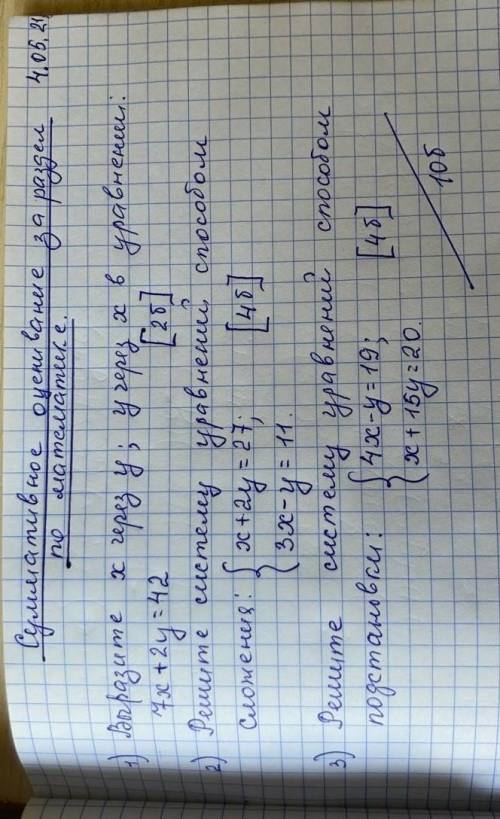 Суммативное оценивание за раздел 4.05.21
по математике.
1) Выразите x через y; y через x в уравнении:
7x+2y=42 [2б]
2) Решите систему уравнений способом
сложения: { x+2y=27; [4б]
{ 3x-y=11.
3) Решите систему уравнений способом
подстановки: { 4x-y=19; [4б]
{ x+15y=20.
10б